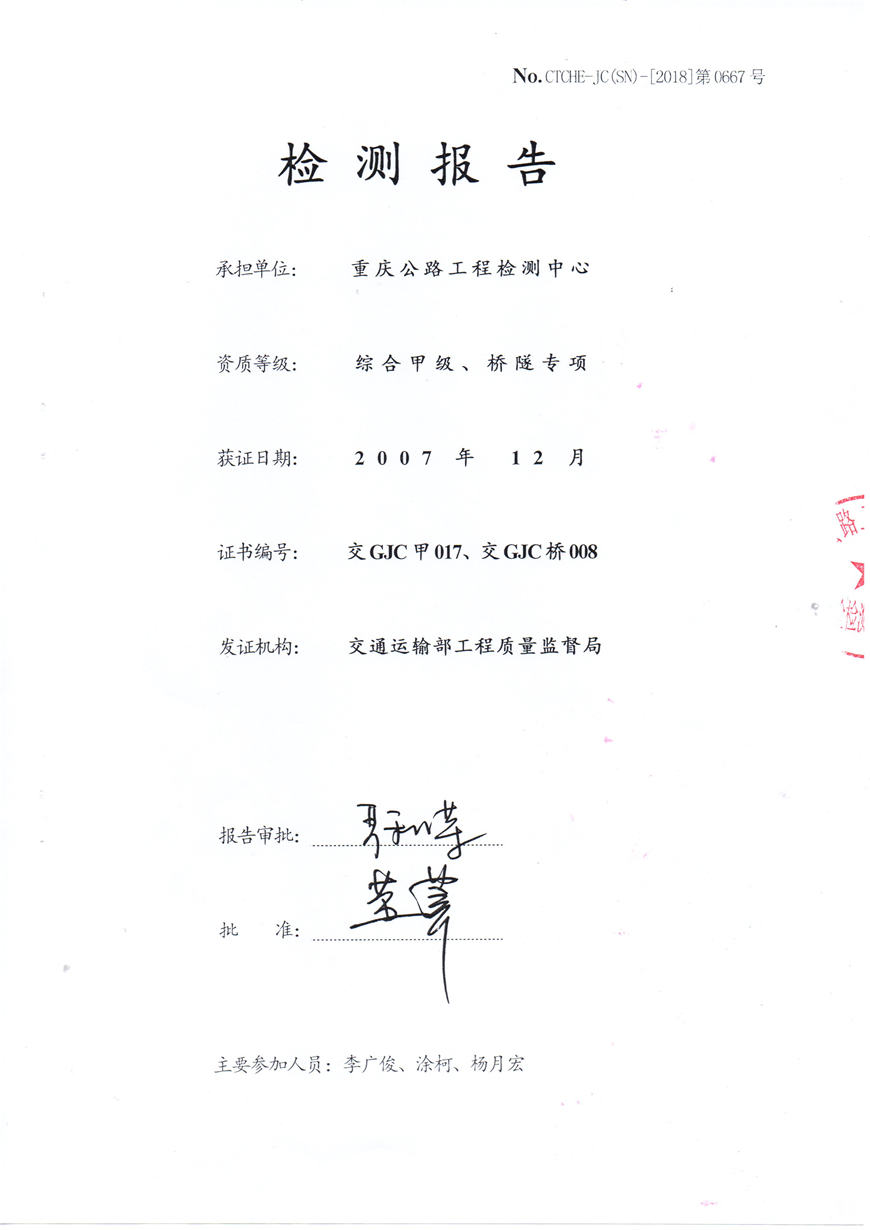 No.CTCHE-JC(SN)-[2018]第0667号
检测报告
承担单位：重庆公路工程检测中心
资质等级：综合甲级、桥隧专项
获证日期：2007年12月
证书编号：交GJC甲017、交GJC桥008
发证机构：交通运输部工程质量监督局
路
检测
报告审批：
批准：
主要参加人员：李广俊、涂柯、杨月宏